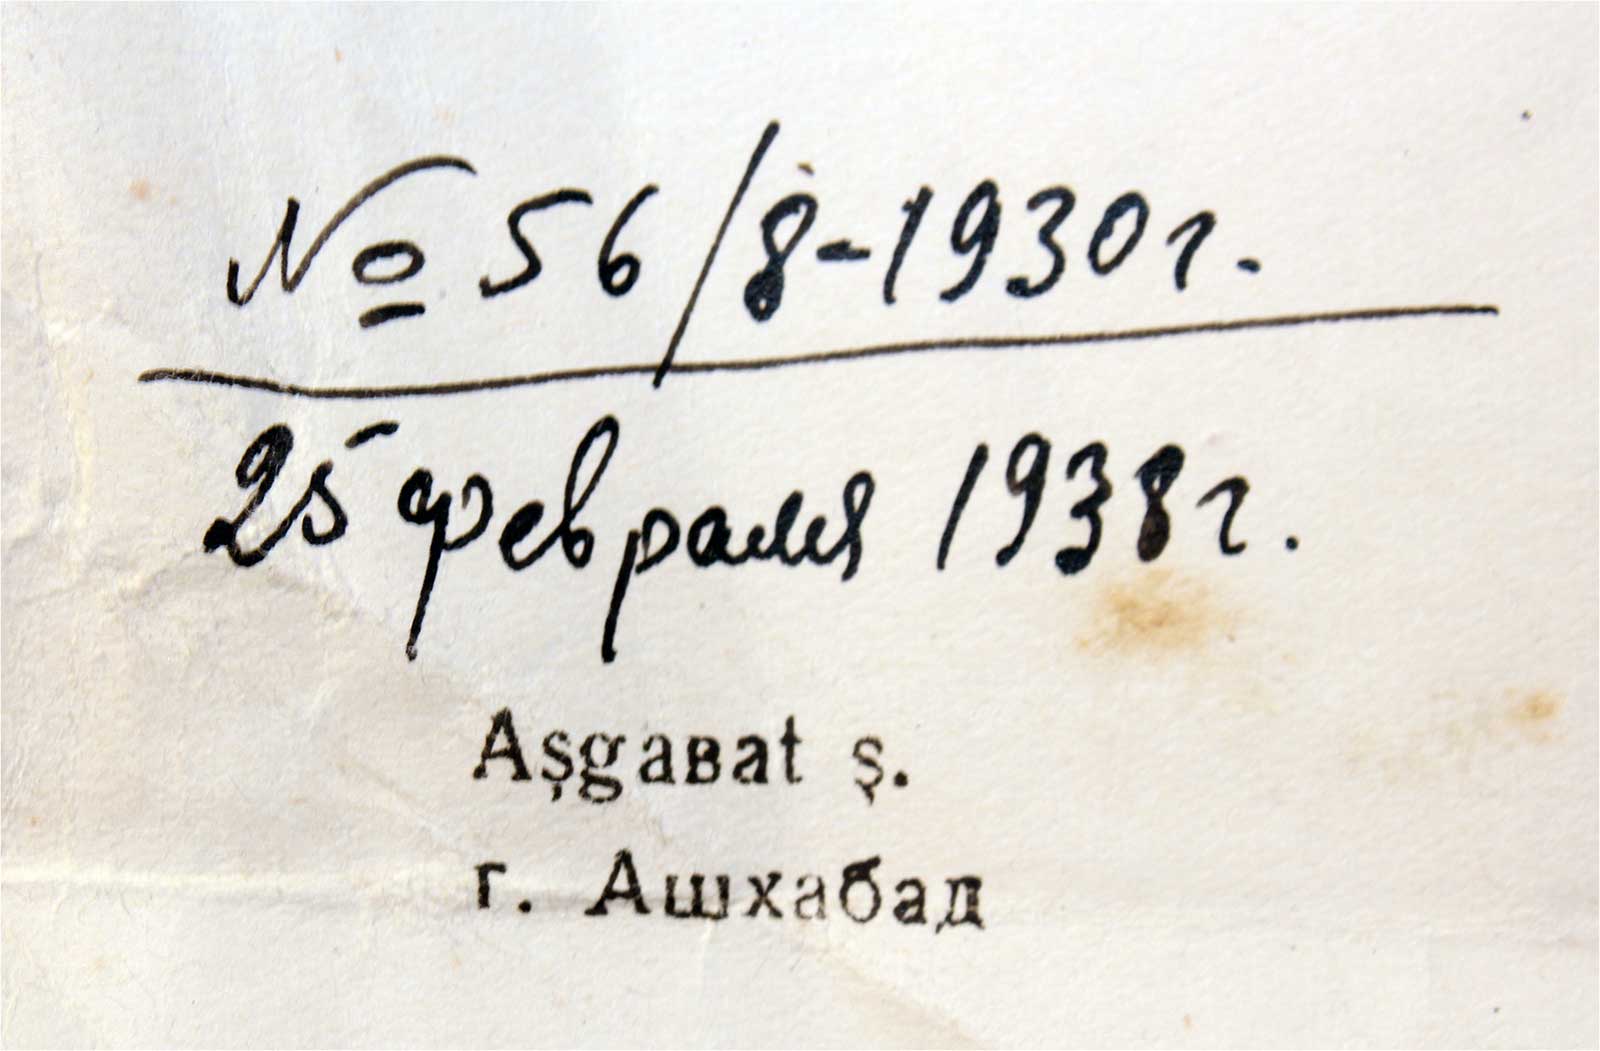 № 56/8-1930г.
25 февраля 1938г.
Aşgaвat ş.
г. Ашхабад